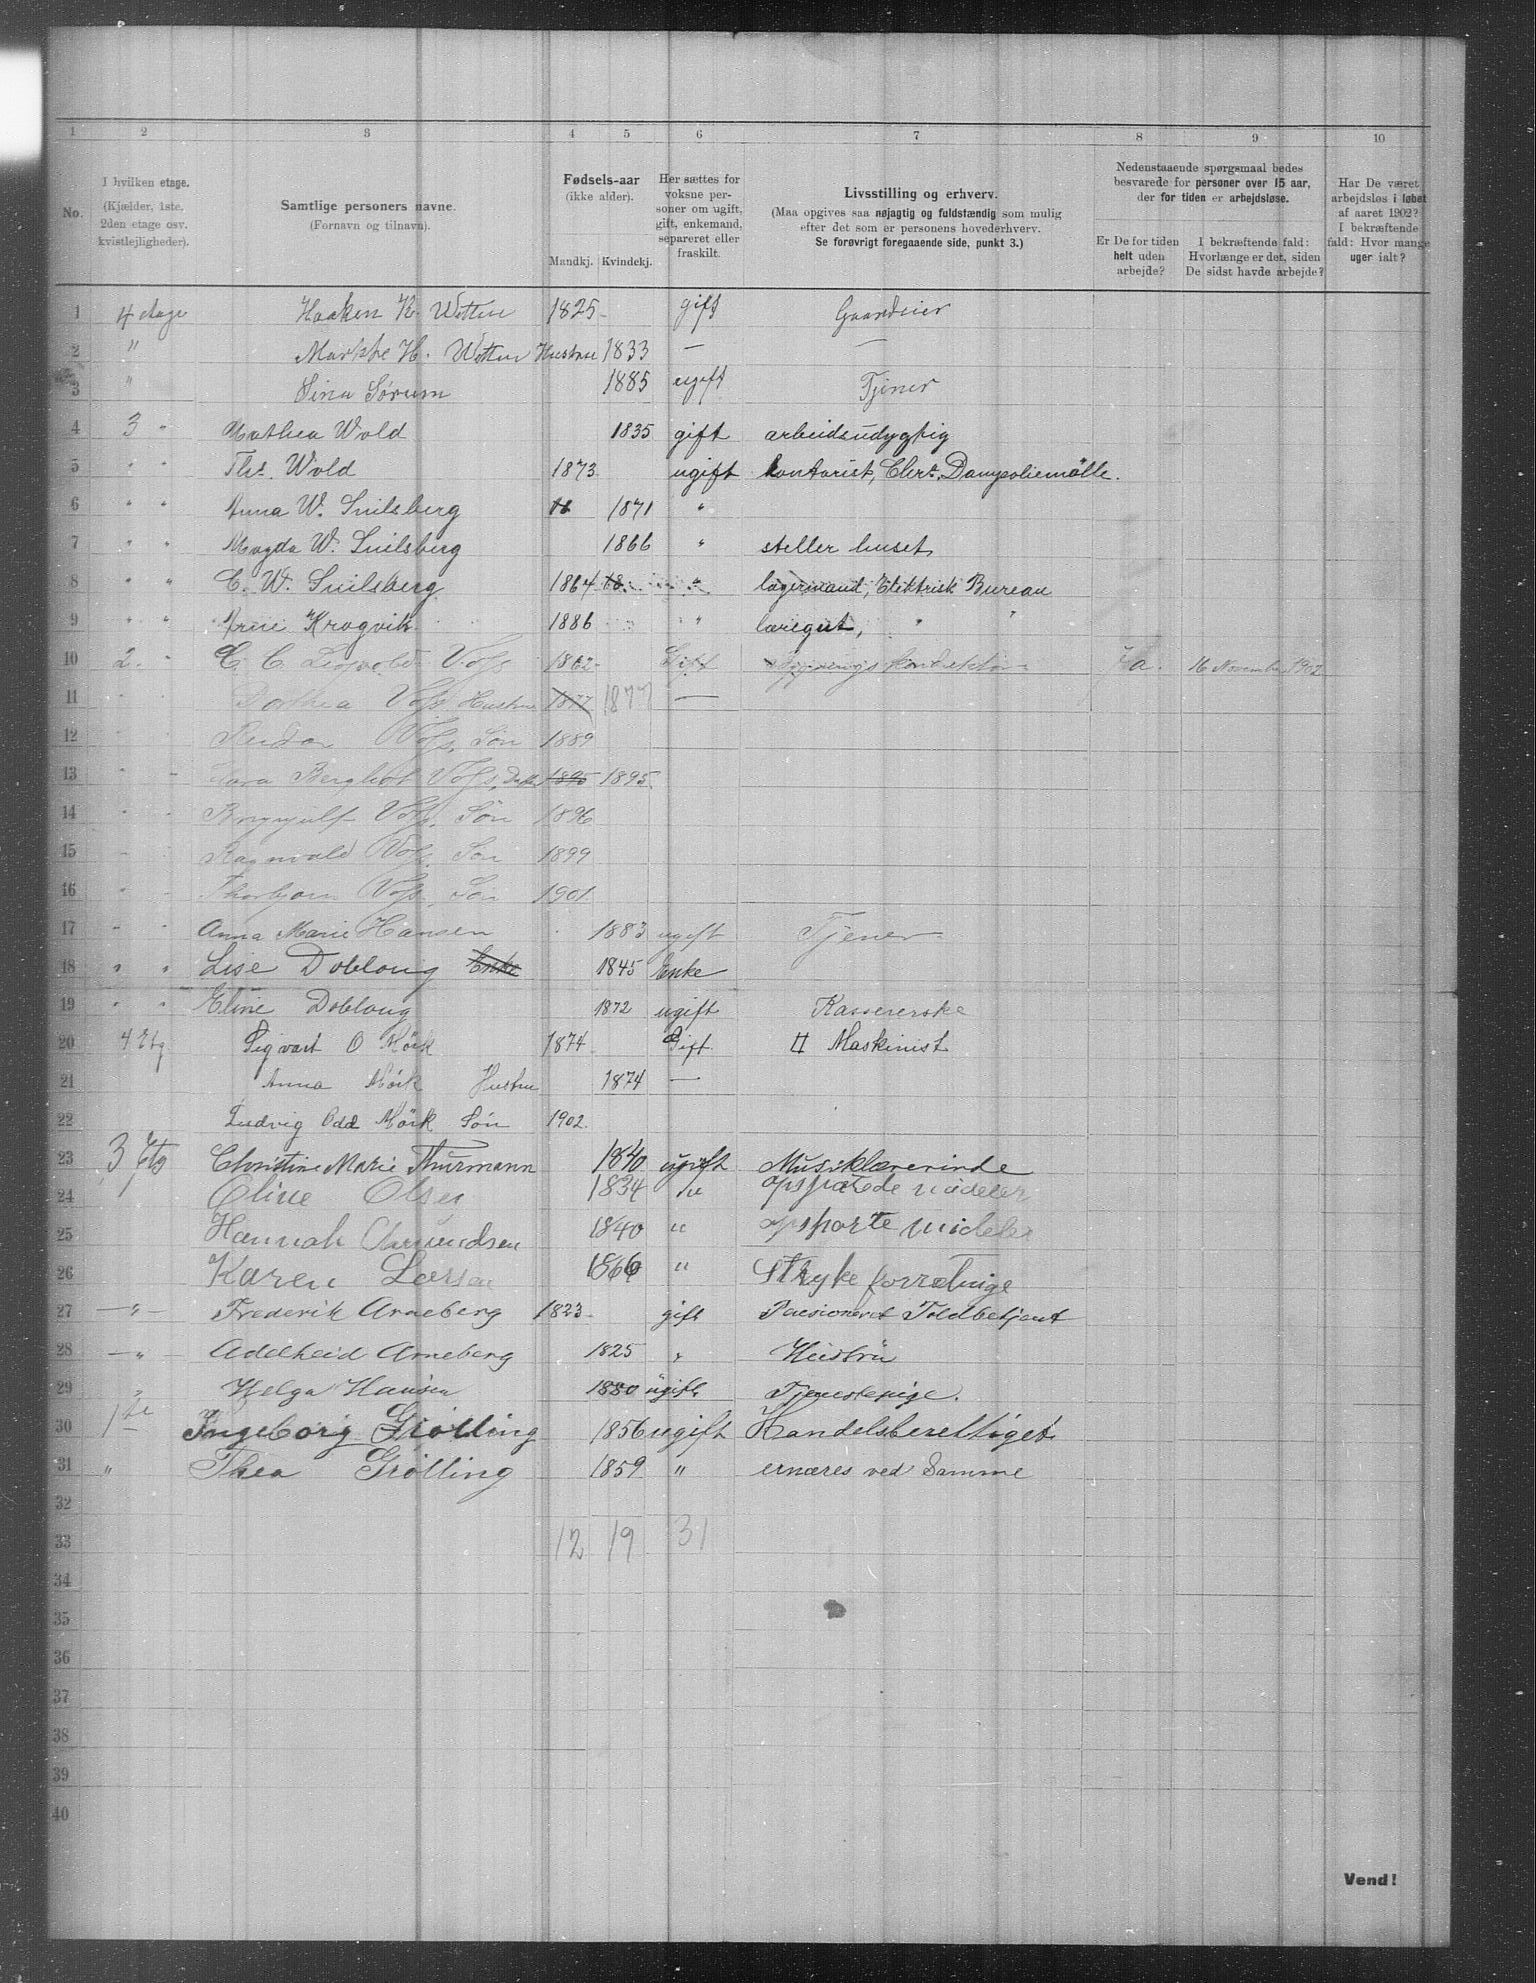 1 2 3 4 5 6 7 8 9 10
No.
I hvilken etage.
(Kjælder, 1ste,
2den etage osv.
kvistlejligheder).
Samtlige personers navne.
(Fornavn og tilnavn).
Fødsels-aar
(ikke alder).
Mandkj. Kvindekj.
Her sættes for
voksne per-
soner om ugift,
gift, enkemand,
separeret eller
fraskilt.
Livsstilling og erhverv.
(Maa opgives saa nøjagtig og fuldstændig som mulig
efter det som er personens hovederhverv.
Se forøvrigt foregaaende side, punkt 3.)
Nedenstaaende spørgsmaal bedes
besvarede for personer over 15 aar,
der for tiden er arbejdsløse.
Er De for tiden
helt uden
arbejde?
I bekræftende fald:
Hvorlænge er det, siden
De sidst havde arbejde?
Har De været
arbejdsløs i løbet
af aaret 1902?
I bekræftende
fald: Hvor mange
uger ialt?
1 4 etage Haaken K. Wetten 1825 gift Gaardeier
2 " H. Wetten Hustru 1833 —
3 " Sina Sørum 1885 ugift Tjener
4 3 " Mathea Wold 1835 gift arbeidsudygtig
5 " " Wold 1873 ugift kontorist, Chr. Dampoliemølle.
6 " " Anna W. Snilsberg 1871 "
7 " " Magda W. Snilsberg 1866 " steller huset
8 " " C. W. Snilsberg 1864 " lagermand, Elektrisk Bureau
9 " " Arne Krogvik 1886 " læregut, " "
10 2. " C. C. Voss 1862 Gift Ja. 16 November 1902
11 " Dorthea Voss Hustru 1877 1877 —
12 " " Reidar Voss, Søn 1889
13 " " Bergliot Voss, 1895 1895
14 " " Brynjulf Voss, Søn 1896
15 " " Ragnvald Voss, Søn 1899
16 " " Thorbjørn Voss, Søn 1901
17 " " Anna Marie Hansen 1883 ugift Tjener
18 " " Lise Dobloug Enke 1845 Enke
19 " " Eline Dobloug 1872 ugift Kassererske
20 4 Etg Sigvart O Mörk 1874 Gift Maskinist
21 Anna Mörk Hustru 1874 —
22 Ludvig Odd Mörk Søn 1902
23 3 Etg Christine Marie Thurmann 1840 ugift Musiklærerinde
24 Oline Olsen 1834 opsparede mideler
25 Hannah Amundsen 1840 " opsparte mideler
26 Karen Larsen 1866 " Stryke forretnige
27 — " — Frederik Arneberg 1823 gift Toldbetjent
28 — " Adelheid Arneberg 1825 " Hustru
29 " Helga Hansen 1880 ugift Tjenestepige.
30 1ste Ingeborg Grölling 1856 ugift Handelsberettiget
31 " Thea Grölling 1859 " ernæres ved Samme
32
33 12 19 31
34
35
36
37
38
39
40
Vend!